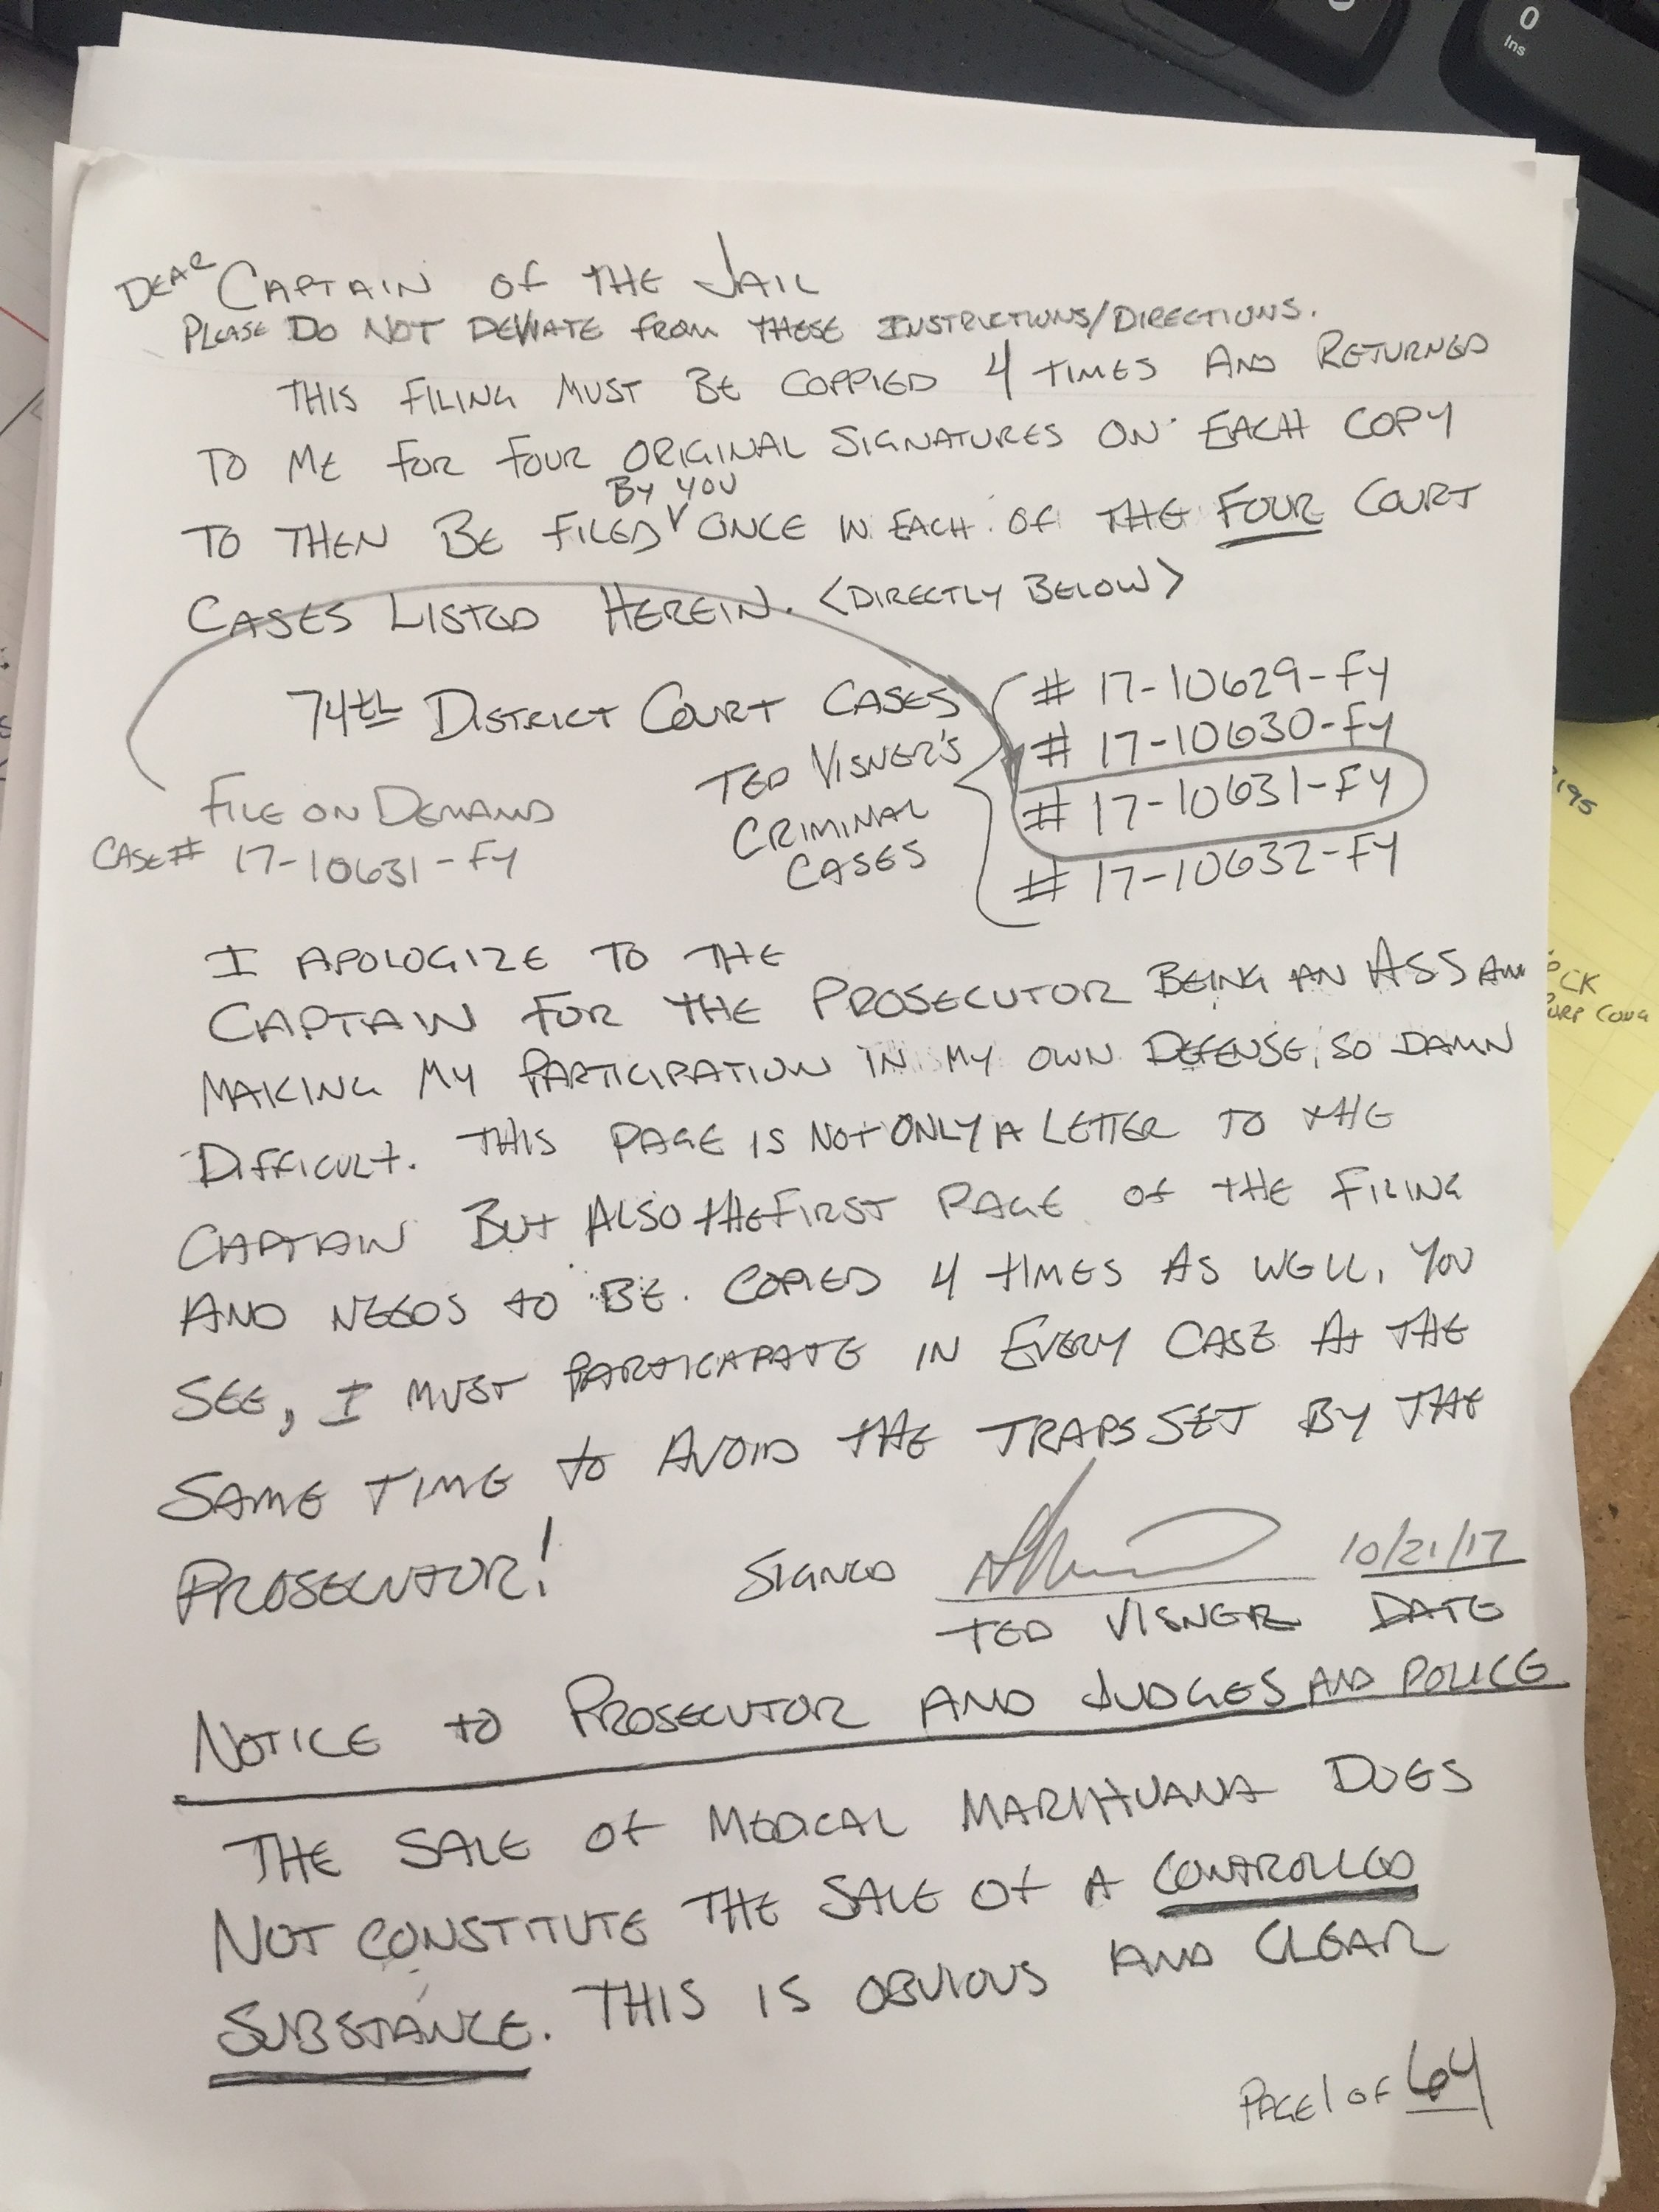 DEAR CAPTAIN OF THE JAIL
PLEASE DO NOT DEVIATE FROM THESE INSTRUCTIONS/DIRECTIONS.
THIS FILING MUST BE COPPIED 4 TIMES AND RETURNED
TO ME FOR FOUR ORIGINAL SIGNATURES ON EACH COPY
BY YOU
TO THEN BE FILED V ONCE IN EACH OF THE FOUR COURT
CASES LISTED HEREIN. <DIRECTLY BELOW>
74th DISTRICT COURT CASES
TED VISNER'S
CRIMINAL
CASES
# 17-10629-FY
# 17-10630-FY
# 17-10631-FY
# 17-10632-FY
FILE ON DEMAND
CASE# 17-10631-FY
I APOLOGIZE TO THE
CAPTAIN FOR THE PROSECUTOR BEING AN ASS AND
MAKING MY PARTICIPATION IN MY OWN DEFENSE, SO DAMN
DIFFICULT. THIS PAGE IS NOT ONLY A LETTER TO THE
CAPTAIN BUT ALSO THE FIRST PAGE OF THE FILING
AND NEEDS TO BE COPIED 4 TIMES AS WELL. YOU
SEE, I MUST PARTICAPATE IN EVERY CASE AT THE
SAME TIME TO AVOID THE TRAPS SET BY THE
PROSECUTOR!
SIGNED
10/21/17
TED VISNER DATE
NOTICE TO PROSECUTOR AND JUDGES AND POLICE
THE SALE OF MEDICAL MARIHUANA DOES
NOT CONSTITUTE THE SALE OF A CONTROLLED
SUBSTANCE. THIS IS OBVIOUS AND CLEAR
PAGE 1 OF 64
0
Ins
195
CK
CONG